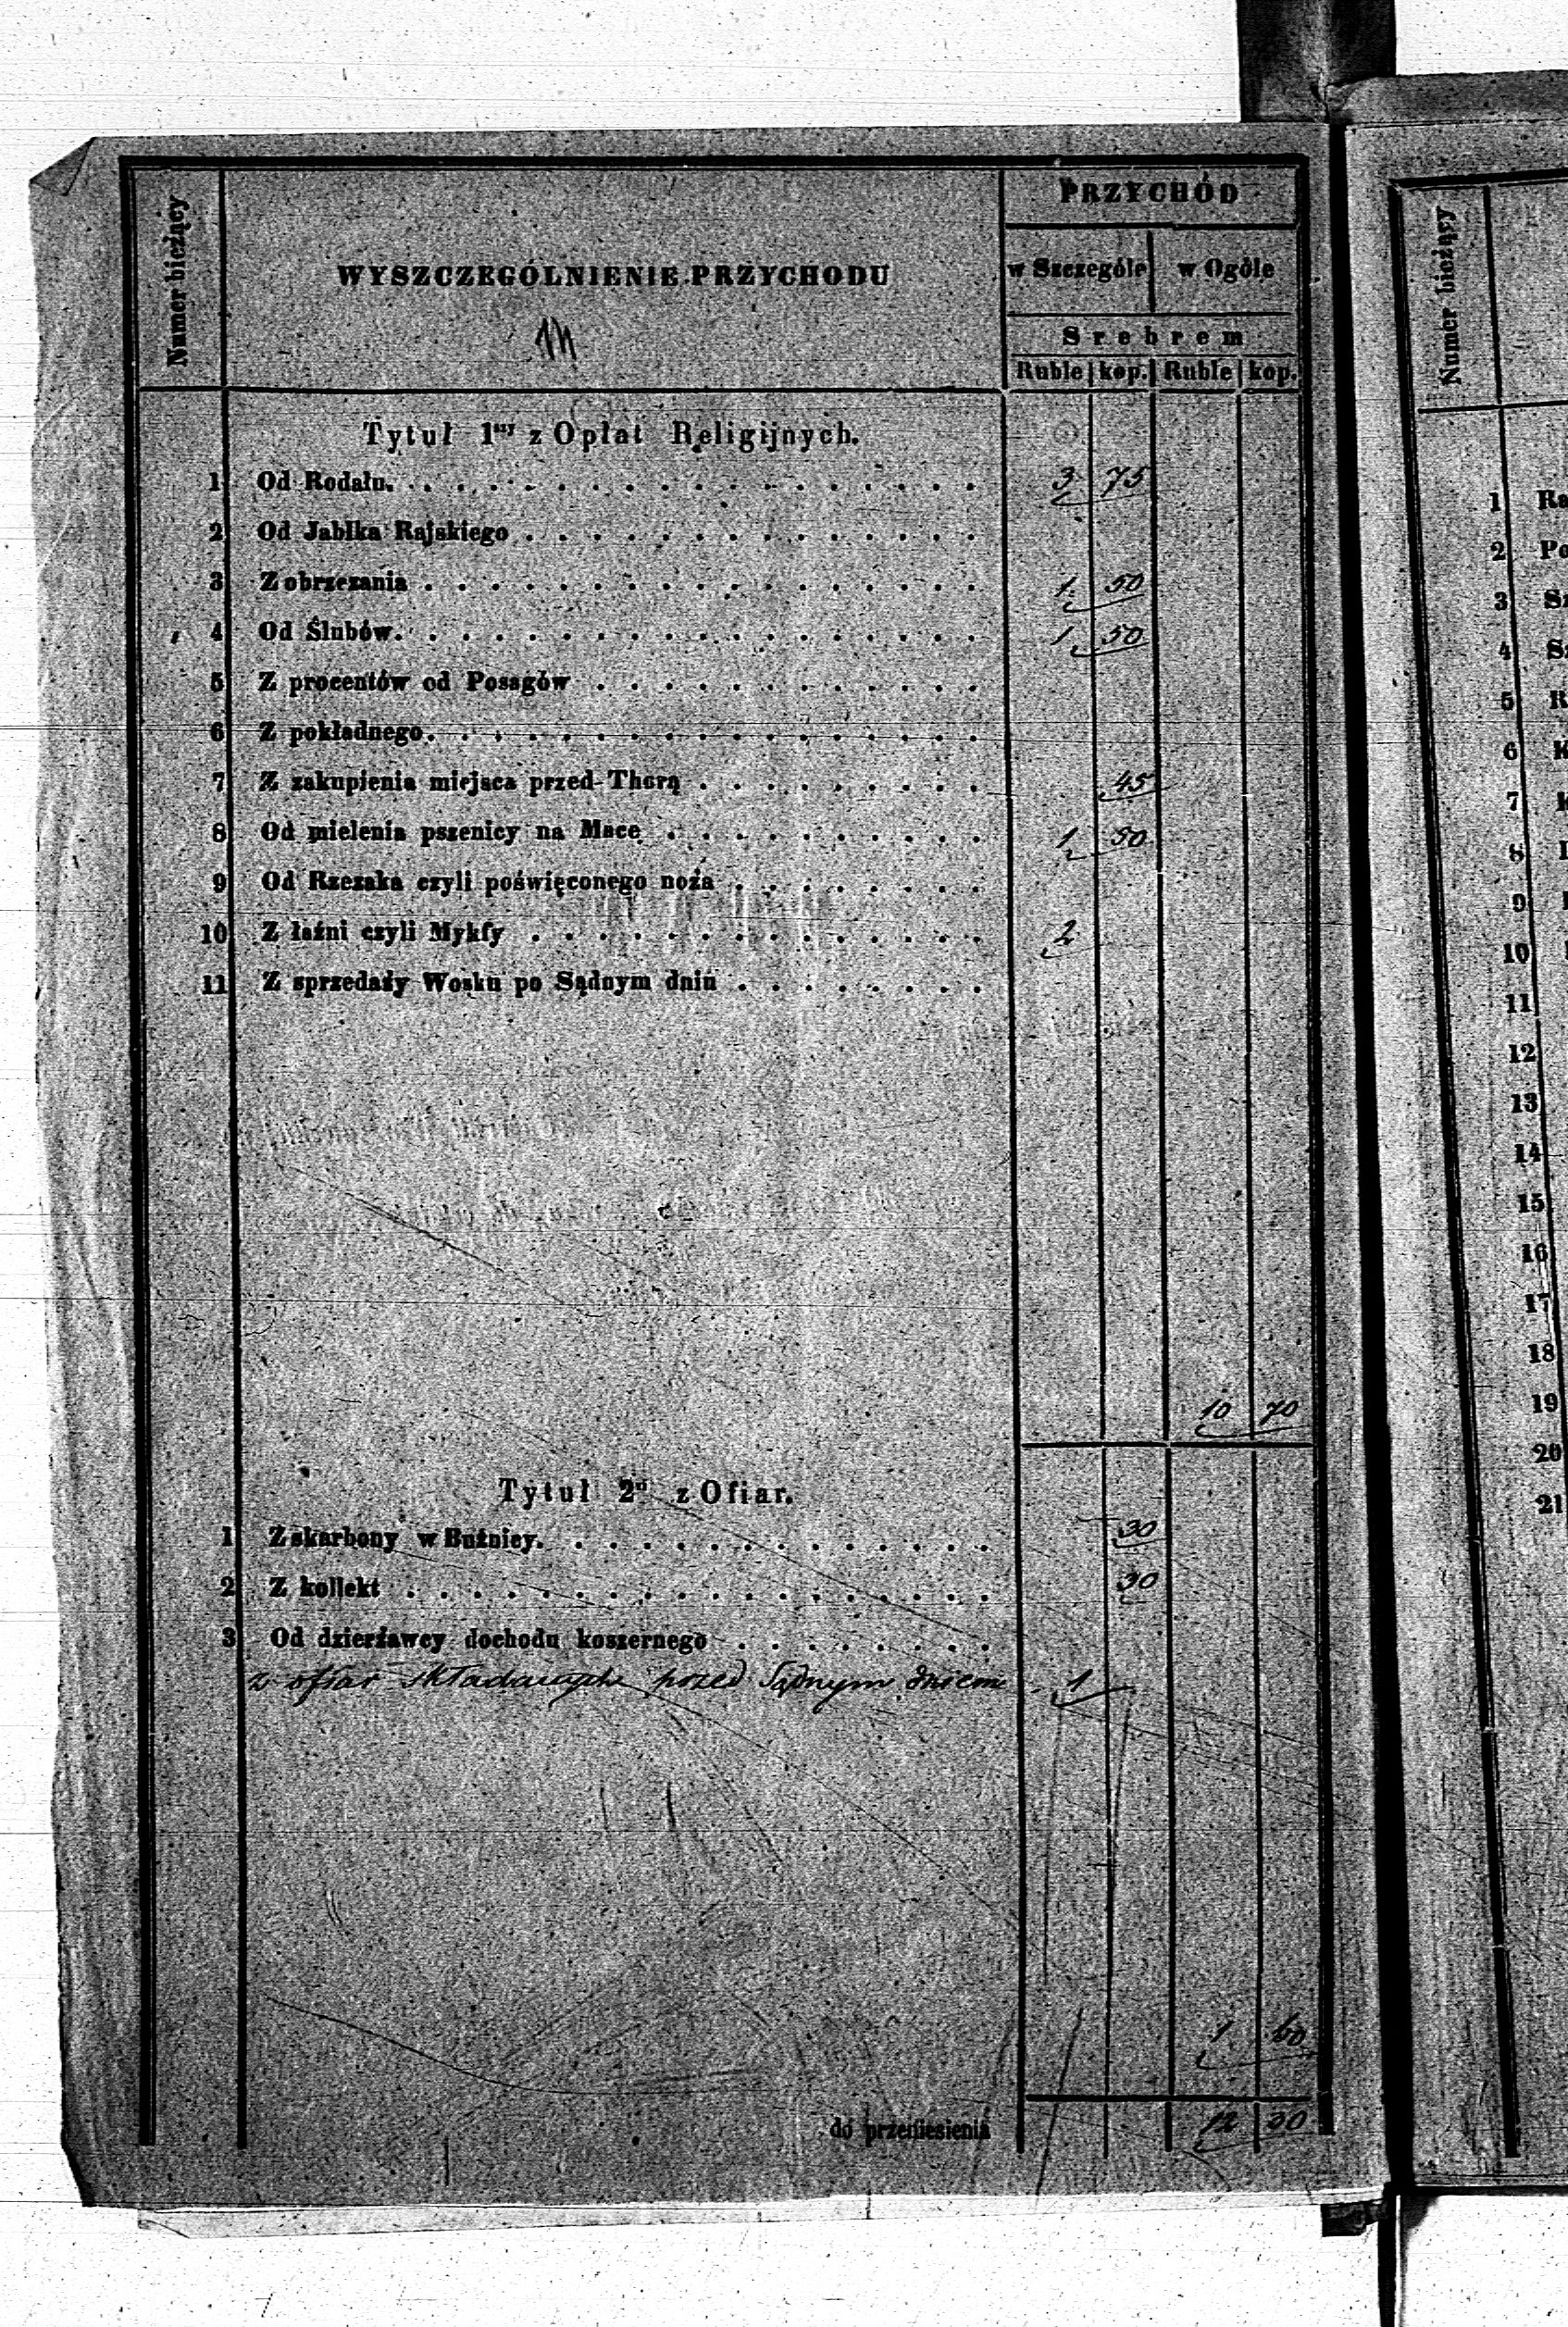 Numer bieżący
WYSZCZEGÓLNIENIE PRZYCHODU
PRZYCHÓD
w Szczególe w Ogóle
Srebrem
Ruble kop. Ruble kop.
Tytuł 1szy z Opłat Religijnych.
1 Od Rodału. 3 75
2 Od Jabłka Rajskiego
3 Z obrzezania 1 50
4 Od Ślubów. 1 50
5 Z procentów od Posagów
6 Z pokładnego.
7 Z zakupienia miejsca przed Thorą 45
8 Od mielenia pszenicy na Mace 1 50
9 Od Rzezaka czyli poświęconego noża
10 Z łaźni czyli Mykfy 2
11 Z sprzedaży Wosku po Sądnym dniu
10 70
Tytuł 2i z Ofiar.
1 Z skarbony w Bużnicy. 30
2 Z kollekt 30
3 Od dzierżawcy dochodu koszernego
z ofiar składanych przed Sądnym dniem 1 —
1 60
do przeniesienia 12 30
Numer bieżący
1
2 Po
3
4
5
6
7
8
9
10
11
12
13
14
15
16
17
18
19
20
21